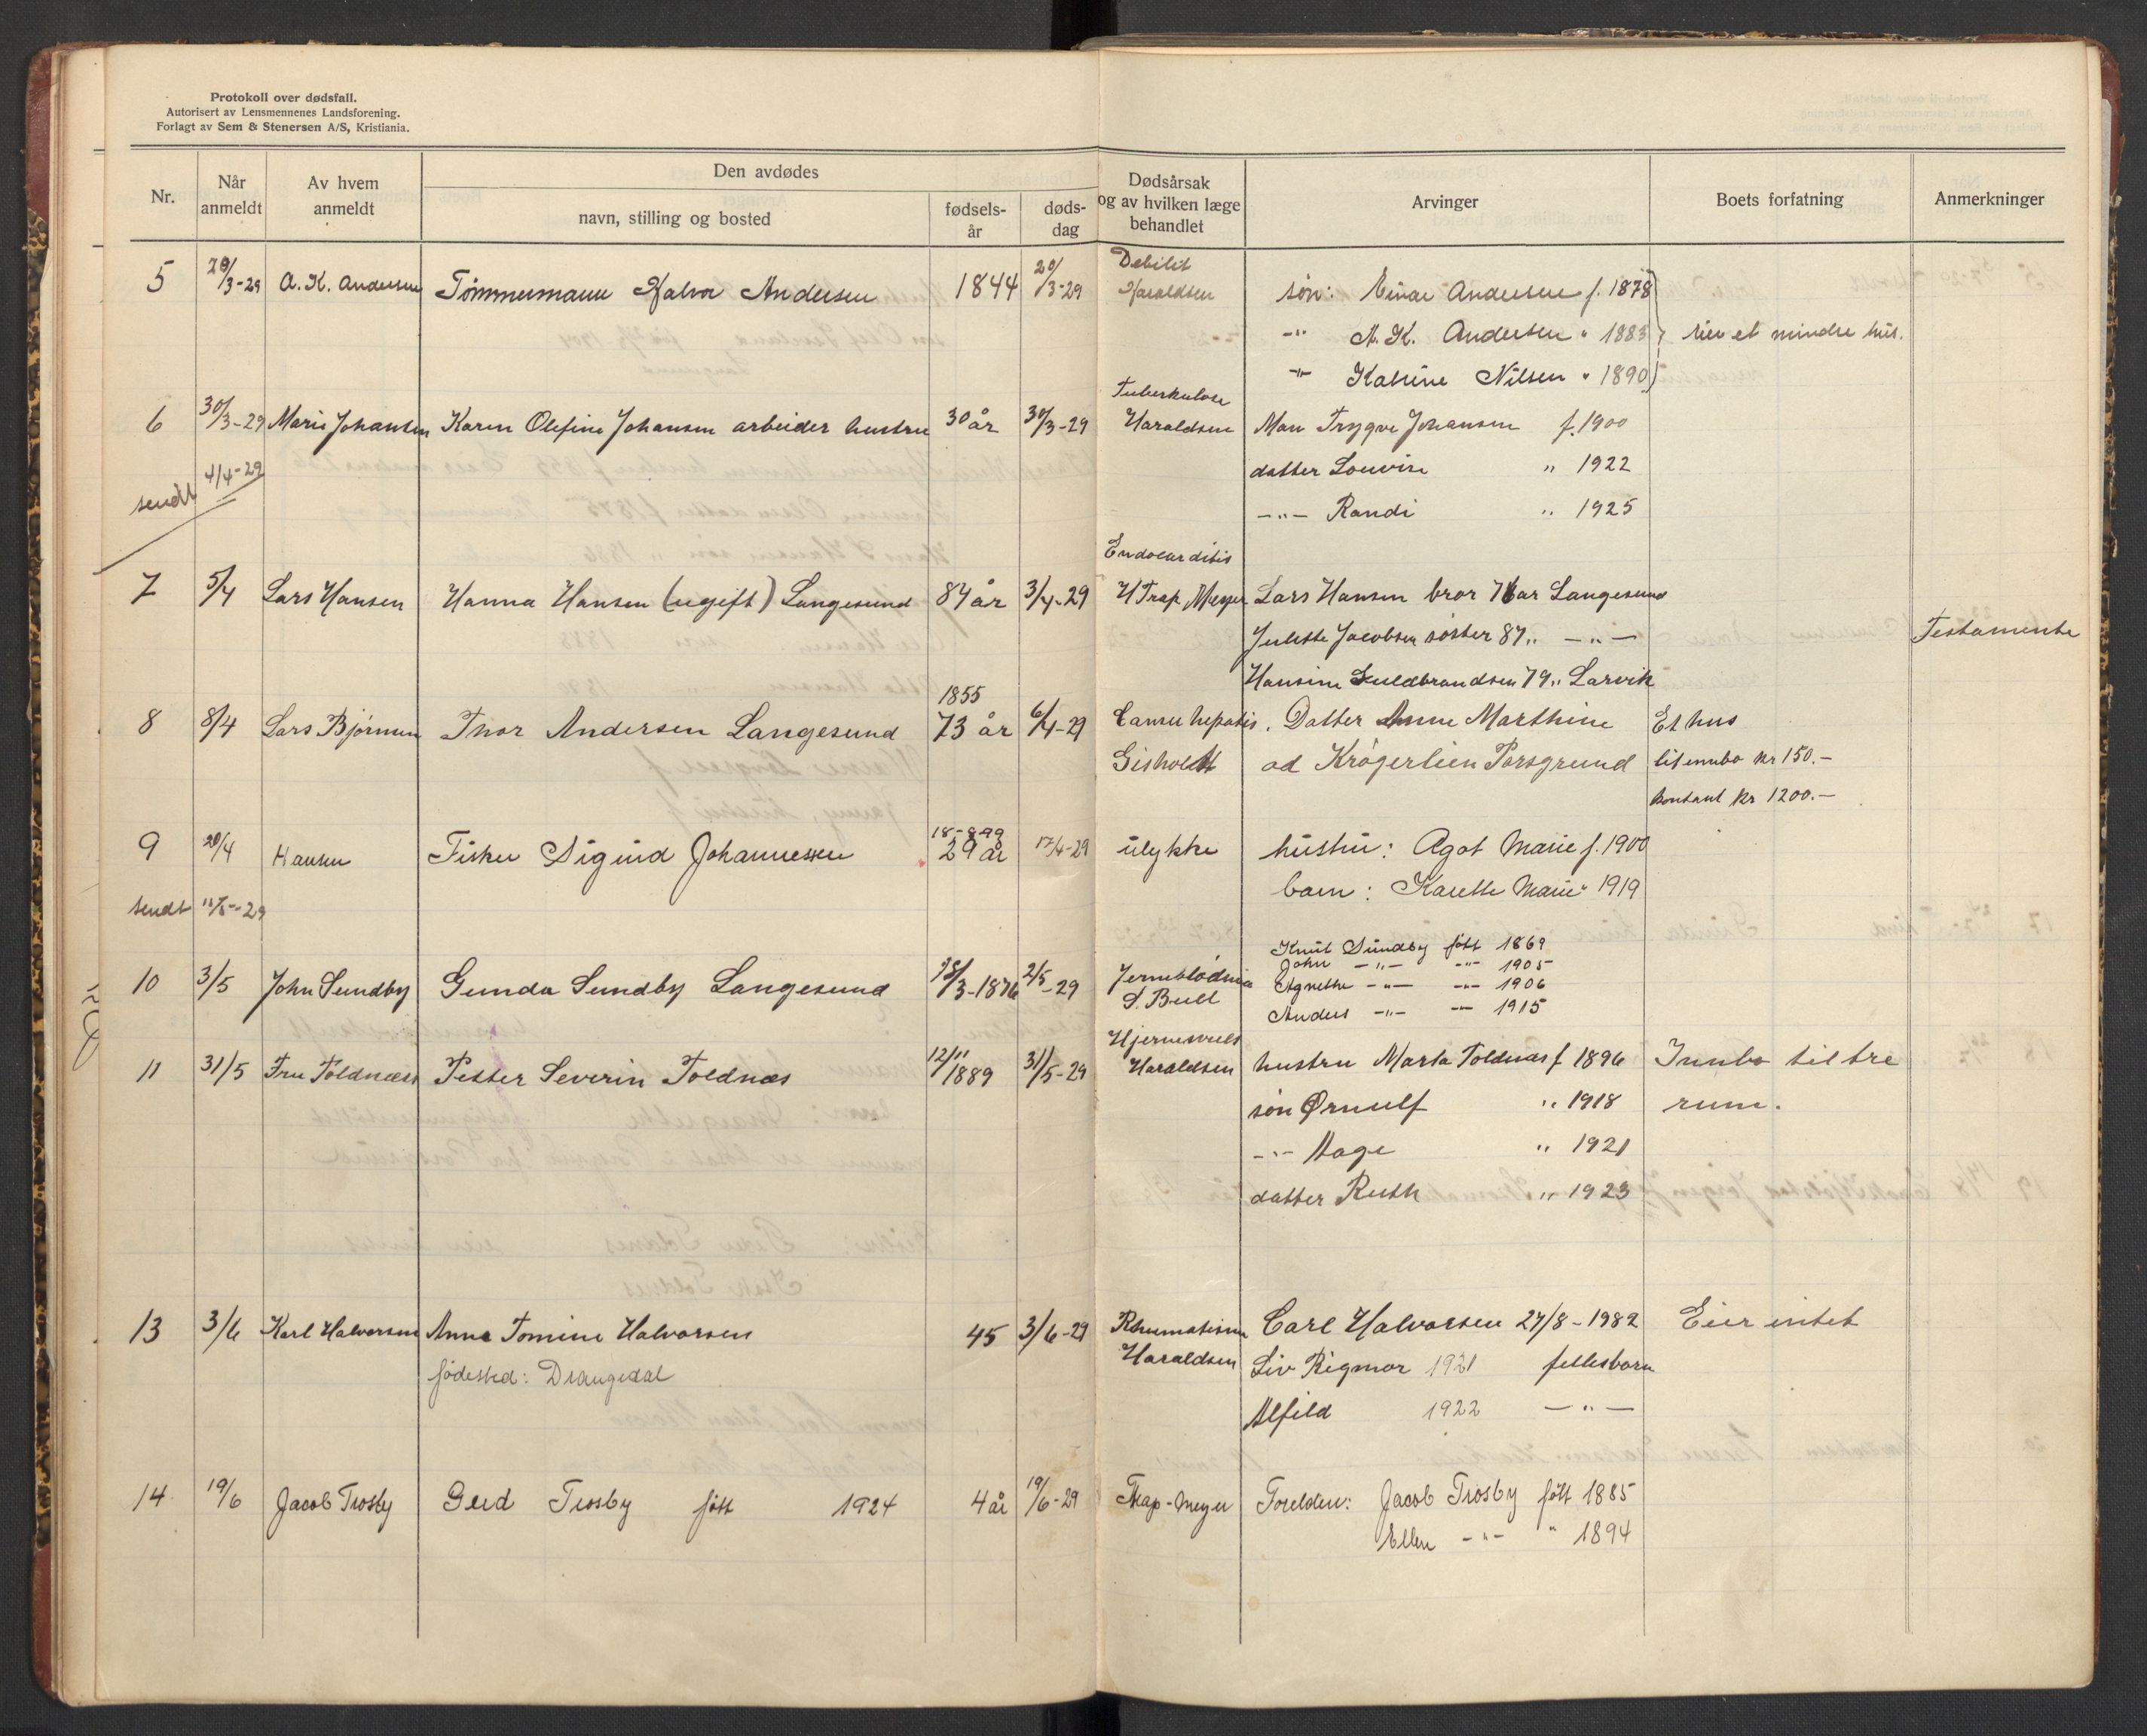 Protokoll over dødsfall.
Autorisert av Lensmennenes Landsforening.
Forlagt av Sem & Stenersen A/S, Kristiania.
Nr. Når anmeldt Av hvem anmeldt Den avdødes navn, stilling og bosted fødsels-år døds-dag Dødsårsak og av hvilken læge behandlet Arvinger Boets forfatning Anmerkninger
5 20/3-29 A. K. Andersen Tømmermann Halvor Andersen 1844 20/3-29 Debilit Haraldsen søn: Einar Andersen f. 1878
-"- A. K. Andersen " 1883 eier et mindre hus.
-"- Katrine Nilsen " 1890
6 30/3-29 Marie Johansen Karen Olefine Johansen arbeider hustru 30 år 30/3-29 Tuberkulose Haraldsen Man Trygve Johansen f. 1900
sendt 4/4-29 datter Louvise " 1922
-"- Randi " 1925
7 5/4 Lars Hansen Hanna Hansen (ugift) Langesund 84 år 3/4-29 Endocarditis H Trap Meyer Lars Hansen bror 76 ar Langesund
Juliette Jacobsen søster 87 " -"- Testamente
Hansine Guldbrandsen 79 " Larvik
8 8/4 Lars Bjørnum Thor Andersen Langesund 1855 73 år 6/4-29 Cancer hepatis. Gisholdt Datter Anne Marthine Et hus
ad Krøgerlien Porsgrund litinnbo kr 150.-
kontant kr 1200.-
9 20/4 Hansen Fisker Sigurd Johannessen 18-8-99 29 år 17/4-29 ulykke hustru: Agot Marie f. 1900
barn: Karette Marie " 1919
sendt 11/5-29
10 3/5 John Sundby Gunda Sundby Langesund 28/3-1876 2/5-29 Jerneblødnin S. Bull Knut Sundby født 1869
John -"- -"- 1905
Agnethe -"- -"- 1906
Anders -"- -"- 1915
11 31/5 Fru Toldnæs Petter Severin Toldnæs 12/11 1889 31/5-29 Hjernesvuls Haraldsen hustru Marta Toldnæs f 1896 Innbo til tre
søn Ørnulf " 1918 rum.
-"- Aage " 1921
datter Ruth " 1923
13 3/6 Karl Halvorsen Anna Tomine Halvorsen 45 3/6-29 Rheumatisme Haraldsen Carl Halvorsen 27/8-1982 Eier intet
fødested: Drangedal Liv Rigmor 1921 fellesbarn
Alfild 1922 -"-
14 19/6 Jacob Trosby Gerd Trosby født 1924 4 år 19/6-29 Trap-Meyer Foreldre: Jacob Trosby født 1885
Ellen -"- " 1894